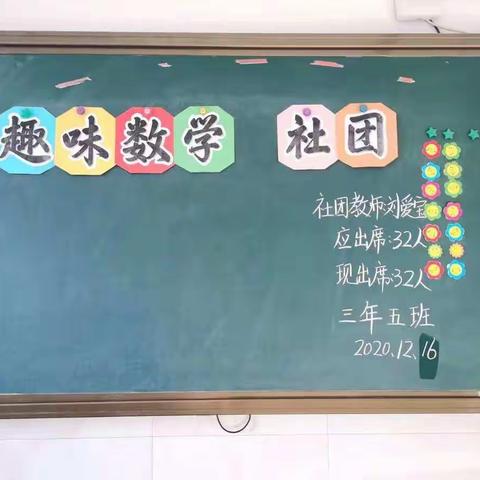 趣味数学 社团
社团教师:刘爱宝
应出席:32人
现出席:32人
三年五班
2020.12.16